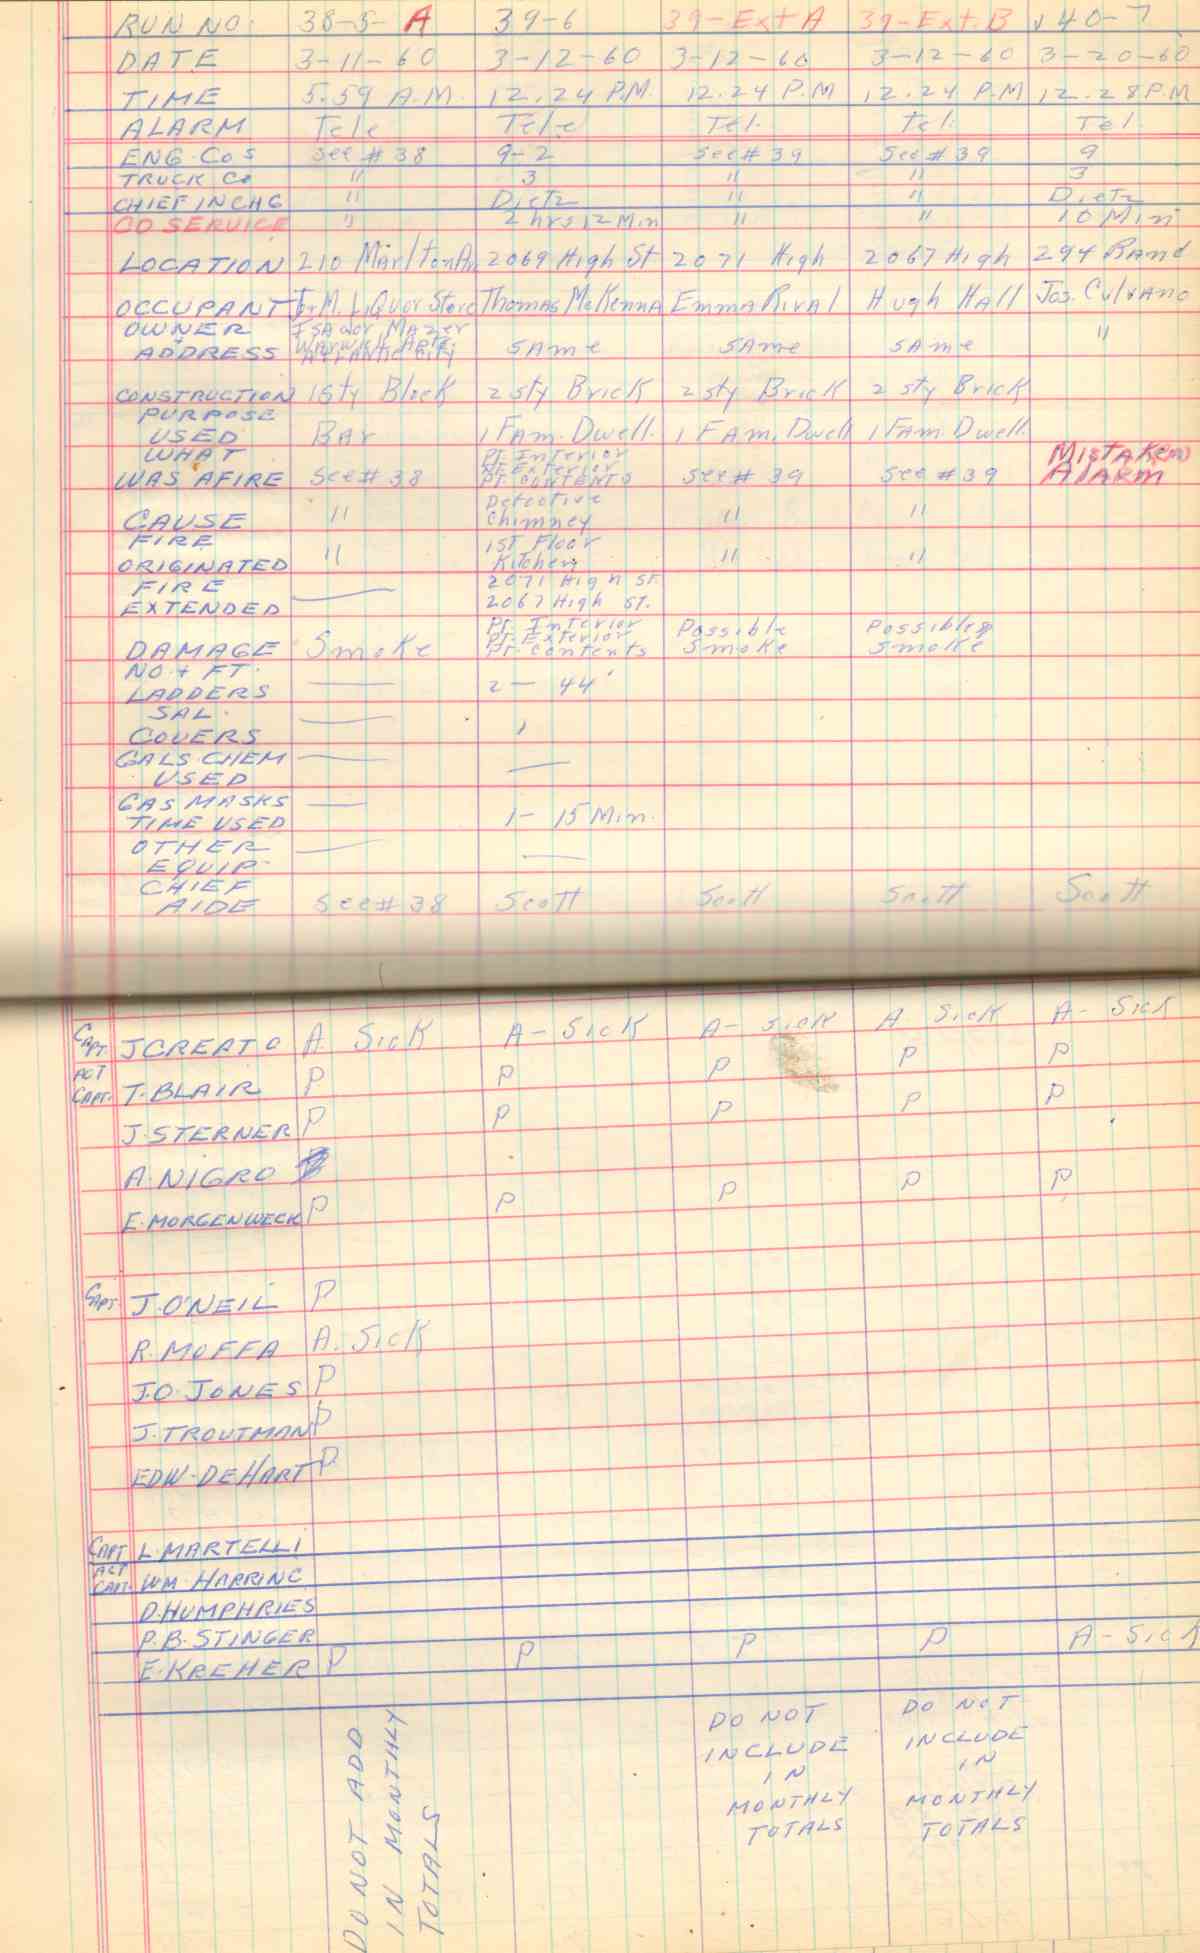 RUN NO. 38-5-A 39-6 39-Ext A 39-Ext. B 40-7
DATE 3-11-60 3-12-60 3-12-60 3-12-60 3-20-60
TIME 5.59 A.M. 12.24 P.M. 12.24 P.M 12.24 P.M 12.28 P.M
ALARM Tele Tele Tel. Tel. Tel.
ENG. COS See # 38 9-2 See # 39 See # 39 9
TRUCK CO " 3 " " 3
CHIEF IN CHG " Dietz " " Dietz
CO SERVICE " 2 hrs 12 Min " " 10 Min
LOCATION 210 Marlton Av 2069 High St 2071 High 2067 High 294 Rand
OCCUPANT I.M. LiQuor Store Thomas McKenna Emma Rival Hugh Hall Jos.
OWNER ISAdor Mazer "
Warwick Apts.
ADDRESS Atlantic City SAme SAme SAme
CONSTRUCTION 1Sty Block 2 Sty Brick 2 Sty Brick 2 Sty Brick
PURPOSE
USED BAr 1 FAm. Dwell. 1 FAm. Dwell 1 FAm. Dwell.
WHAT Pt. Interior Mistaken
Pt. Exterior
WAS AFIRE See # 38 Pt. Contents See # 39 See # 39 Alarm
Defective
CAUSE " Chimney " "
FIRE 1ST Floor
ORIGINATED " Kitchen " "
FIRE 2071 High St.
EXTENDED — 2067 High St.
Pt. Interior Possible Possible
Pt. Exterior
DAMAGE Smoke Pt. Contents Smoke Smoke
NO. & FT.
LADDERS — 2 — 44'
SAL.
COVERS — 1
GALS. CHEM — —
USED
GAS MASKS —
TIME USED 1- 15 Min.
OTHER —
EQUIP. —
CHIEF
AIDE See # 38 Scott Scott Scott Scott
CAPT. J CREATO A. SicK A- SicK A- SicK A SicK A- SicK
ACT
CAPT. T. BLAIR P P P P P
J. STERNER P P P P P
A. NIGRO
E. MORGENWECK P P P P P
CAPT. J. O'NEIL P
R. MOFFA A. SicK
J.O. JONES P
J. TROUTMAN P
EDW. DEHART P
CAPT L. MARTELLI
ACT
CAPT. WM. HARRING
D. HUMPHRIES
P. B. STINGER
E. KREHER P P P P A- SicK
DO NOT ADD
IN MONTHLY
TOTALS
DO NOT
INCLUDE
IN
MONTHLY
TOTALS
DO NOT
INCLUDE
IN
MONTHLY
TOTALS